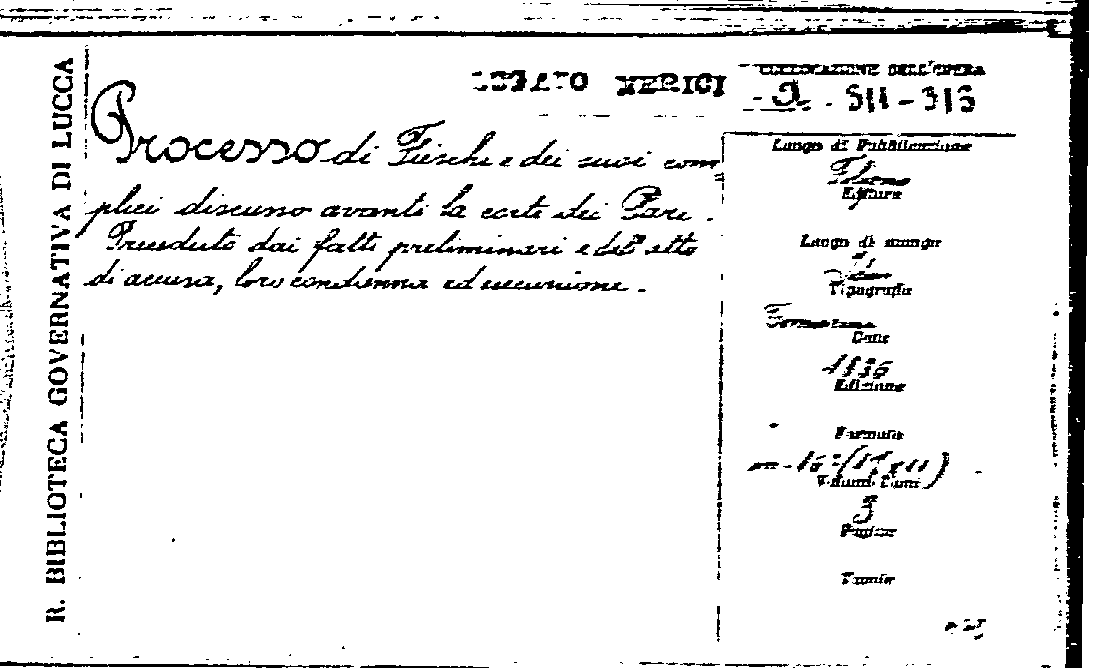 R. BIBLIOTECA GOVERNATIVA DI LUCCA
LEGATO MERICI
COLLOCAZIONE DELL'OPERA
Processo di Fieschi e dei suoi com
plici discusso avanti la corte dei Pari.
Preceduto dai fatti preliminari e dell'atto
di accusa, loro condanna ed esecuzione.
Luogo di Pubblicazione
Milano
Editore
Luogo di stampa
Tipografia
Data
1836
Edizione
Formato
Volumi Tomi
3
Pagine
Tavole